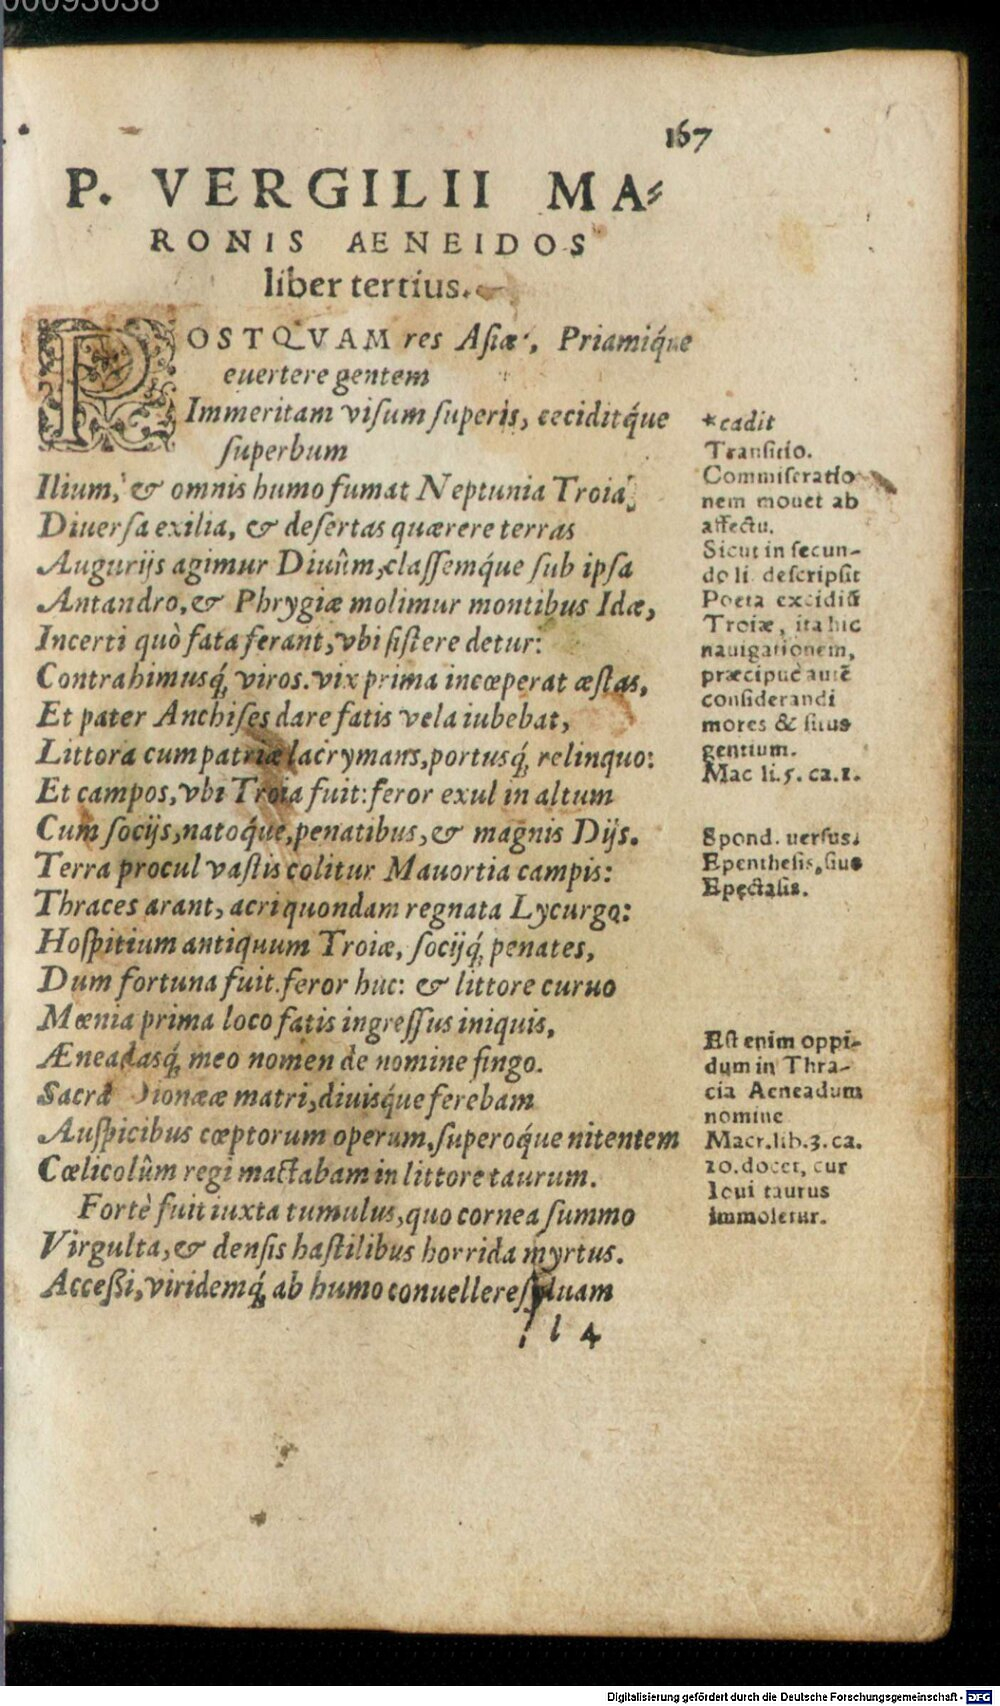 00093038
167
P. VERGILII MA⸗
RONIS AENEIDOS
liber tertius.
POSTQVAM res Asiæ, Priamíque
euertere gentem
Immeritam visum superis, ceciditq́ue
superbum
Ilium, & omnis humo fumat Neptunia Troia;
Diuersa exilia, & desertas quærere terras
Augurijs agimur Diuûm, classemq́ue sub ipsa
Antandro, & Phrygiæ molimur montibus Idæ,
Incerti quò fata ferant, vbi sistere detur:
Contrahimusq́; viros. vix prima incœperat æstas,
Et pater Anchises dare fatis vela iubebat,
Littora cum patriæ lacrymans, portusq́; relinquo:
Et campos, vbi Troia fuit: feror exul in altum
Cum socijs, natoq́ue, penatibus, & magnis Dijs.
Terra procul vastis colitur Mauortia campis:
Thraces arant, acri quondam regnata Lycurgo:
Hospitium antiquum Troiæ, socijq́; penates,
Dum fortuna fuit. feror huc: & littore curuo
Mœnia prima loco fatis ingressus iniquis,
Æneadasq́; meo nomen de nomine fingo.
Sacra Dionææ matri, diuisq́ue ferebam
Auspicibus cœptorum operum, superoq́ue nitentem
Cœlicolûm regi mactabam in littore taurum.
Fortè fuit iuxta tumulus, quo cornea summo
Virgulta, & densis hastilibus horrida myrtus.
Accessi, viridemq́; ab humo conuellere syluam
l 4
*cadit
Transitio.
Commiseratio
nem mouet ab
affectu.
Sicut in secun-
do li descripsit
Poeta excidiũ
Troiæ, ita hic
nauigationem,
præcipuè autẽ
considerandi
mores & situs
gentium.
Mac li.5. ca.1.
Spond. uersus.
Epenthesis, siue
Epectasis.
Est enim oppi-
dum in Thra-
cia Aeneadum
nomine
Macr.lib.3. ca.
10. docet, cur
Ioui taurus
immoletur.
Digitalisierung gefördert durch die Deutsche Forschungsgemeinschaft - DFG